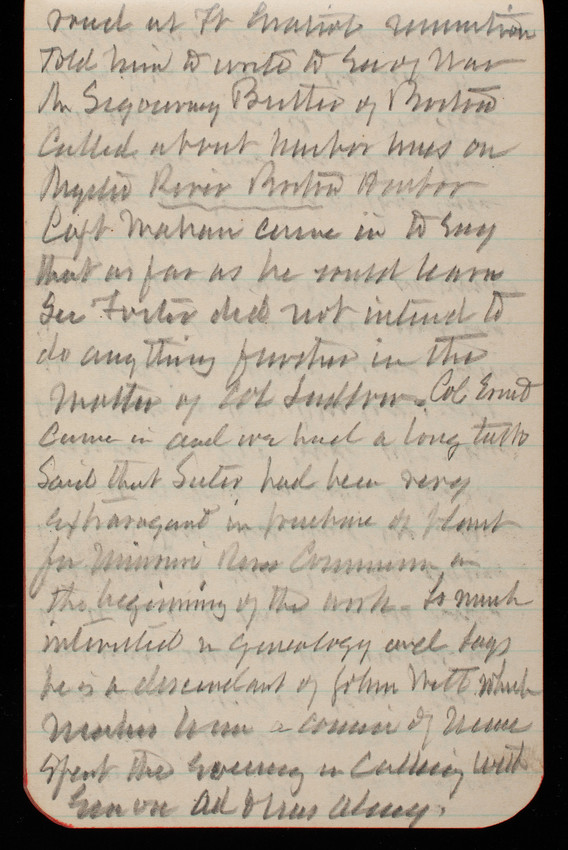 road at Ft Gratiot reservation
Told him to write to Secy War
Mr Sigourney Butler of Boston
Called about harbor lines on
Mystic River Boston Harbor
Capt Mahan came in to say
that as far as he could learn
Sec Foster did not intend to
do anything further in the
matter of Col Ludlow. Col Ernst
came in and we had a long talk
Said that Suter had been very
extravagant in purchase of plant
for Missouri River Commission in
the beginning of the work. Is much
interested in geneology and says
he is a descendant of John Nott which
makes him a cousin of mine
Spent the Evening in Calling with
on and Mrs